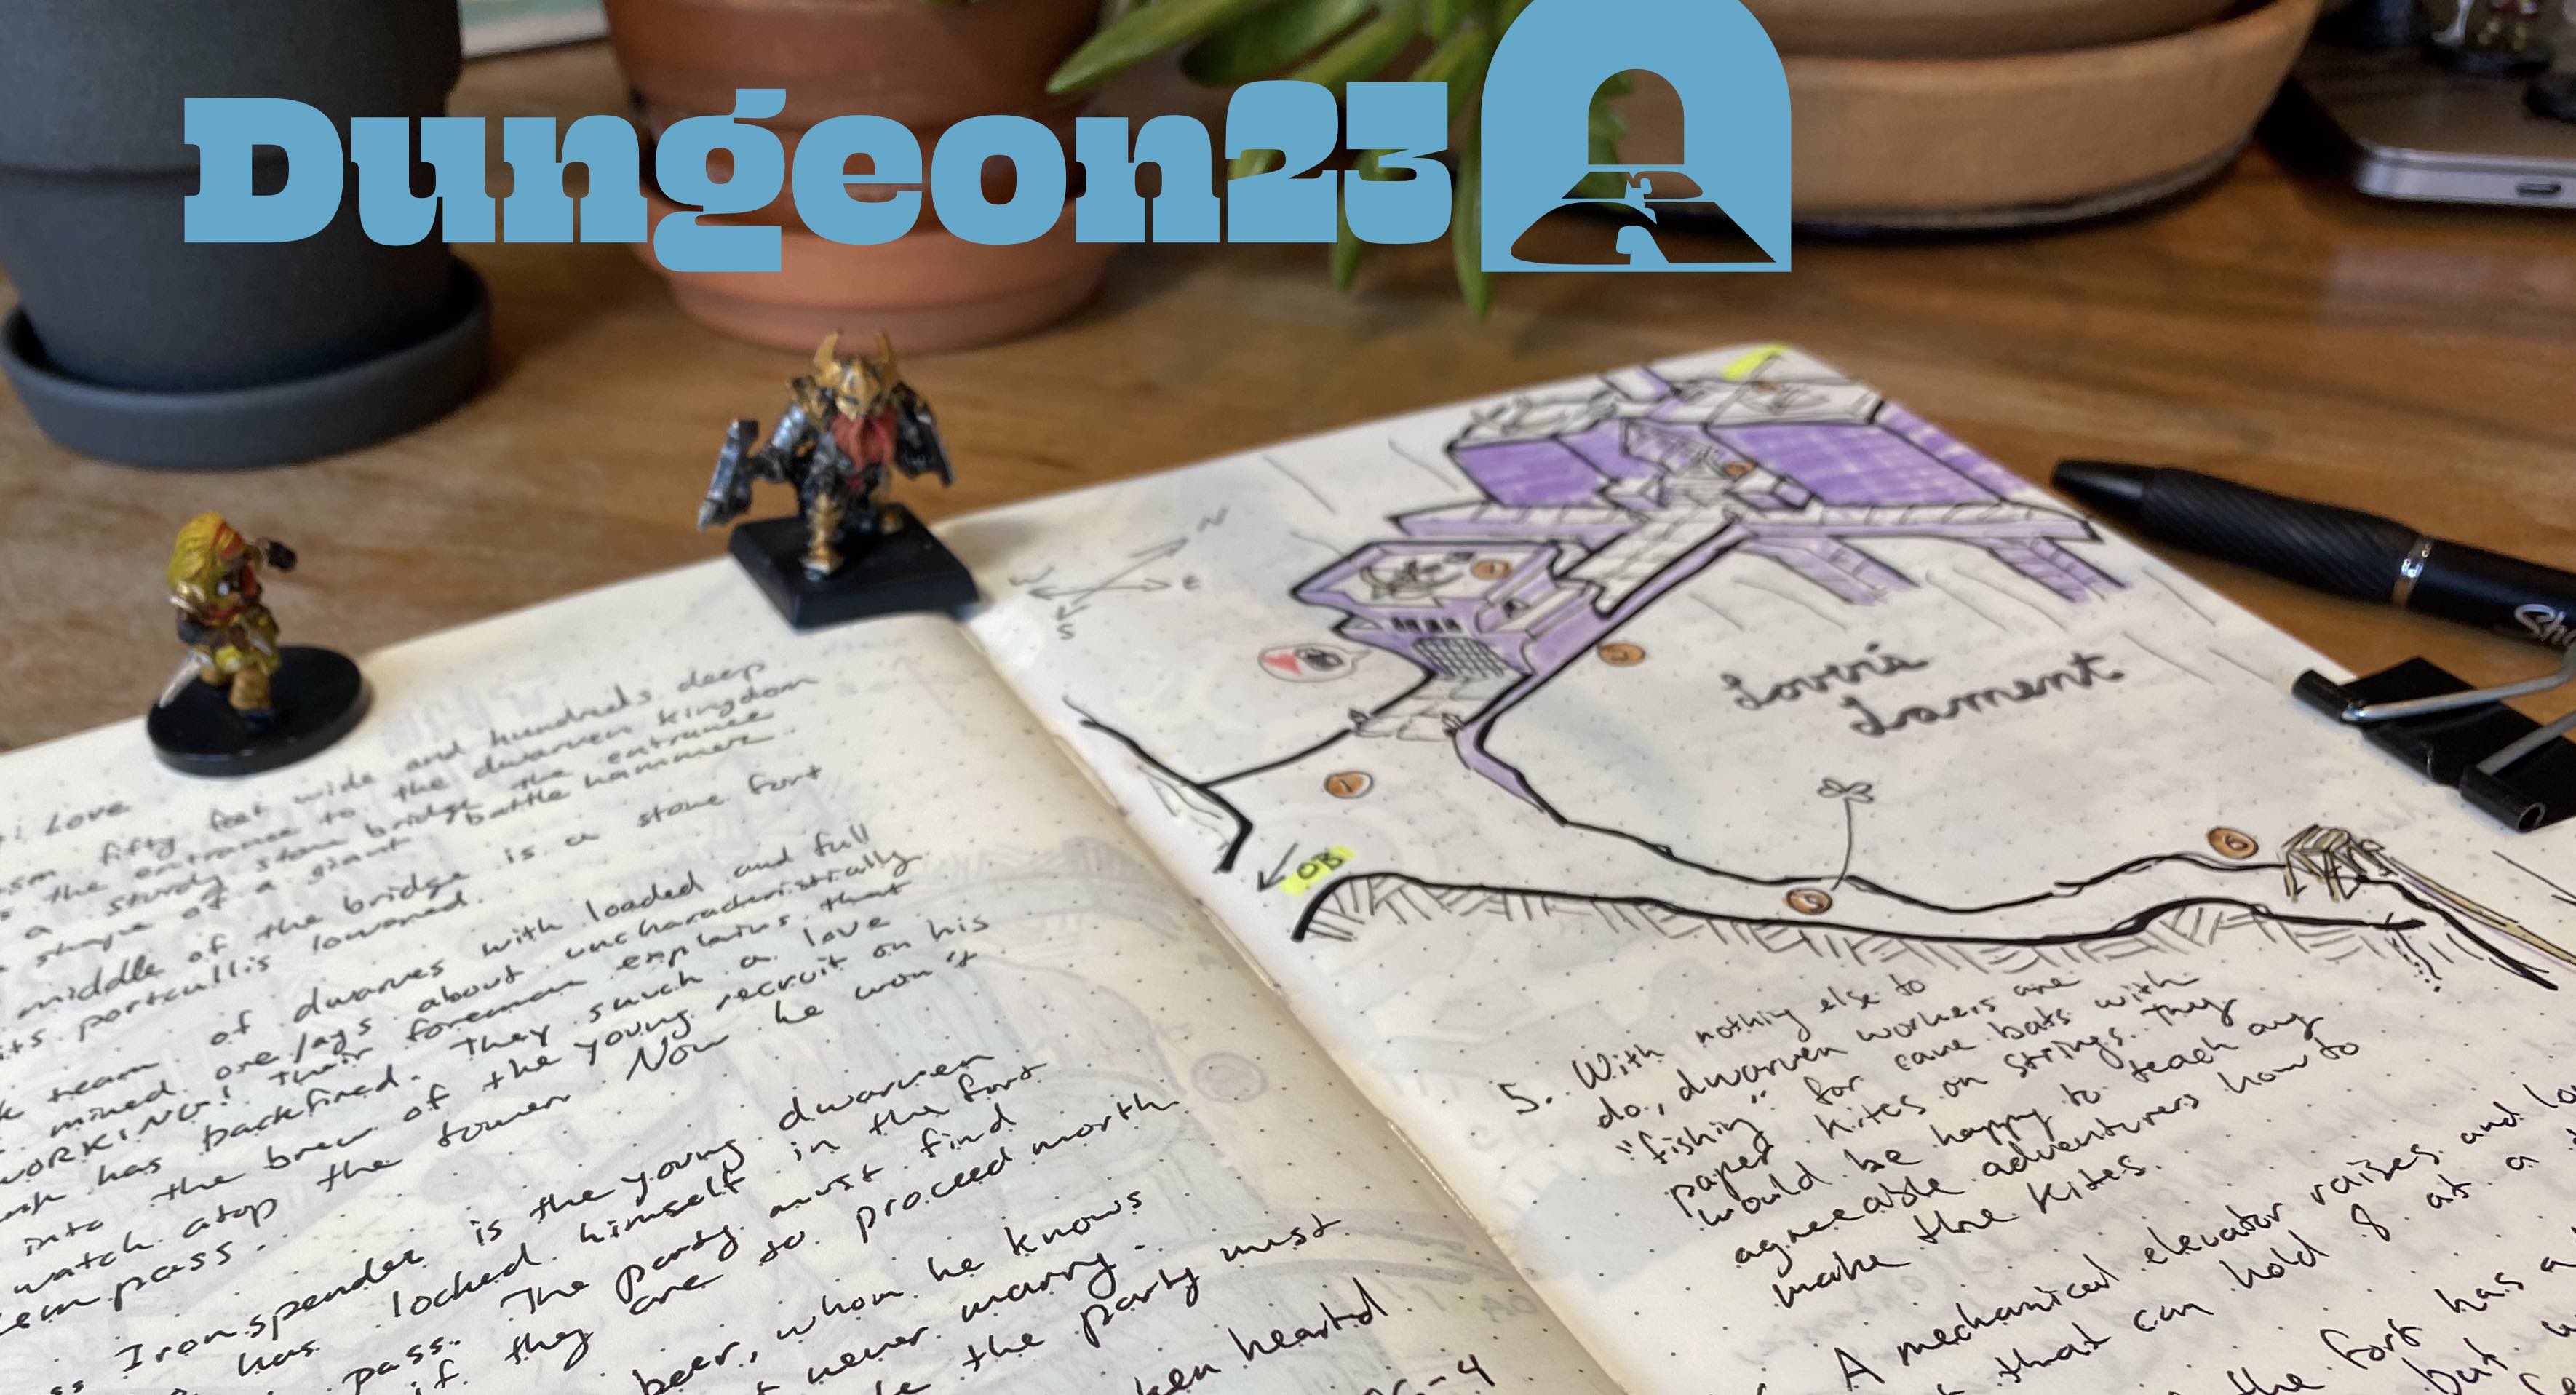 Dungeon23
: Love
fifty feet wide and hundreds deep
the entrance to the dwarven kingdom
a sturdy stone bridge the entrance
shape of a giant battle hammer.
middle of the bridge is a stone fort
its portcullis lowered.
team of dwarves with loaded and full
mined ore/ays about uncharacteristically
WORKING! Their foreman explains that
has backfired. They snuck a love
into the brew of the young recruit on his
watch atop the tower. Now he won't
pass.
Ironspender is the young dwarven
has locked himself in the fort
pass. The party must find
if they are to proceed north.
beer, whom he knows
never marry.
the party must
hearted
-4
N
W
E
S
Lover's
Lament
1
2
OB
5
6
5. With nothing else to
do, dwarven workers are
"fishing" for cave bats with
paper kites on strings. They
would be happy to teach any
agreeable adventurers how to
make the kites.
A mechanical elevator raises and
that can hold 8 at a
the fort has a
but
Sh